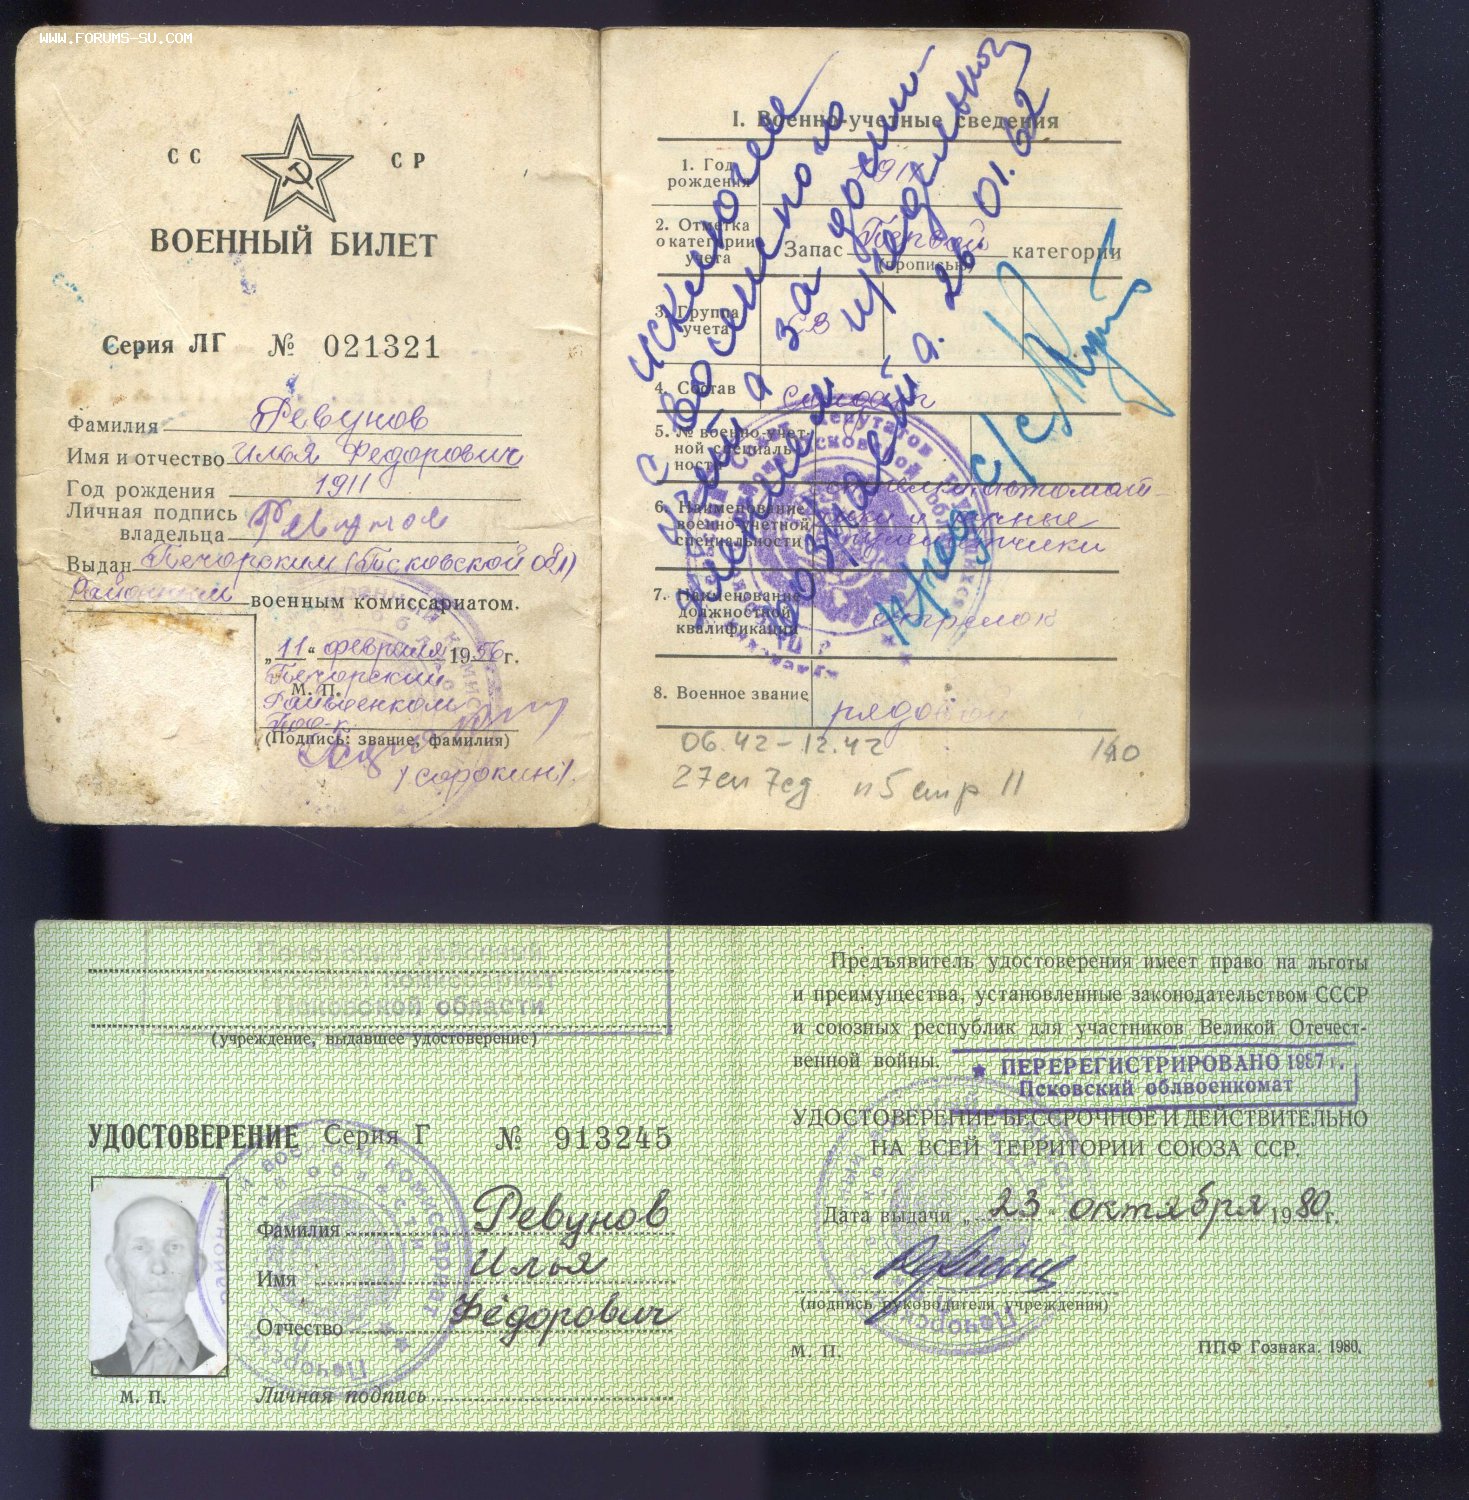 WWW.FORUMS-SU.COM
СС СР
ВОЕННЫЙ БИЛЕТ
Серия ЛГ № 021321
Фамилия Ревунов
Имя и отчество Илья Федорович
Год рождения 1911
Личная подпись
владельца
Выдан Печорским (Псковской обл)
Районным военным комиссариатом.
„11“ февраля 1956 г.
Печорский
М. П.
Райвоенком
(Подпись: звание, фамилия)
/Сорокин/.
I. Военно-учетные сведения
1. Год
рождения
1911
2. Отметка
о категории
учета
Запас Первой категории
(прописью)
3. Группа
учета
СВ
4. Состав
солдат
5. № военно-учет-
ной специаль-
ности
6. Наименование
военно-учетной
специальности
7. Наименование
должностной
квалификации
стрелок
8. Военное звание
рядовой
исключен
с воинского
учета за дости-
жением предельного
возраста. 26.01.62
06.42-12.42
27сп 7сд п5 стр 11
Печорский районный
военный комиссариат
Псковской области
(учреждение, выдавшее удостоверение)
УДОСТОВЕРЕНИЕ Серия Г № 913245
Фамилия Ревунов
Имя Илья
Отчество Фёдорович
М. П.
Личная подпись
Предъявитель удостоверения имеет право на льготы
и преимущества, установленные законодательством СССР
и союзных республик для участников Великой Отечест-
венной войны.
★ ПЕРЕРЕГИСТРИРОВАНО 1987 г.
Псковский облвоенкомат
УДОСТОВЕРЕНИЕ БЕССРОЧНОЕ И ДЕЙСТВИТЕЛЬНО
НА ВСЕЙ ТЕРРИТОРИИ СОЮЗА ССР.
Дата выдачи „23“ октября 1980 г.
(подпись руководителя учреждения)
М. П.
ППФ Гознака. 1980.